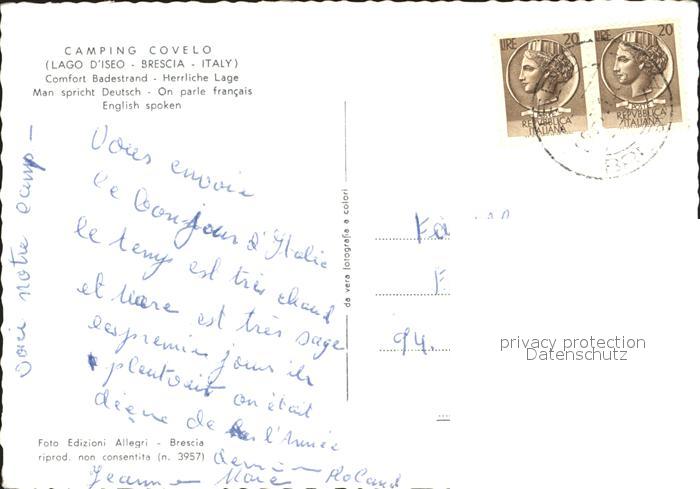 CAMPING COVELO
(LAGO D'ISEO - BRESCIA - ITALY)
Comfort Badestrand - Herrliche Lage
Man spricht Deutsch - On parle français
English spoken
LIRE 20
LIRE 20
POSTE
REPVBBLICA
ITALIANA
POSTE
REPVBBLICA
ITALIANA
Voici notre camp -
Vous envoie
le bonjour d'Italie
le temps est très chaud
et Marc est très sage
les premier jours ils
pleuvait on était
de l'Année
Jeanne Marc Roland
da vera fotografia a colori
94.
privacy protection
Datenschutz
Foto Edizioni Allegri - Brescia
riprod. non consentita (n. 3957)